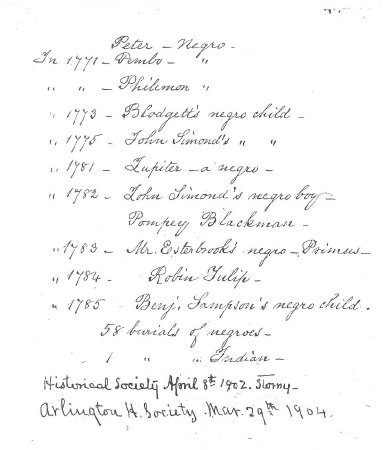 Peter - Negro -
In 1771 - Dimbo - "
" " - Philemon "
" 1773 - Blodgett's negro child -
" 1775 - John Simond's " "
" 1781 - Jupiter - a negro -
" 1782 - John Simond's negro boy -
Pompey Blackman -
" 1783 - Mr. Esterbrook's negro - Primus -
" 1784 - Robin Tulip -
" 1785 - Benj. Sampson's negro child.
58 burials of negroes -
1 " " Indian -
Historical Society April 8th 1902. Stormy -
Arlington H. Society. Mar. 29th 1904.